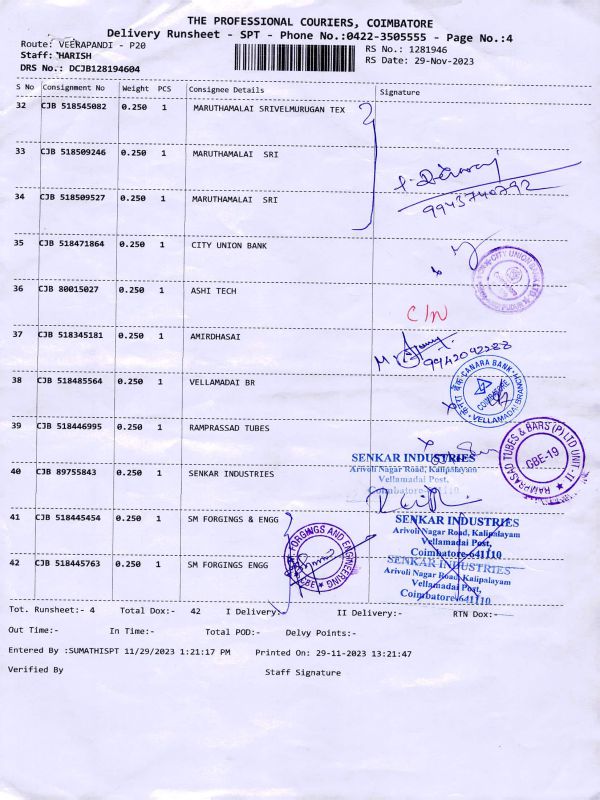 THE PROFESSIONAL COURIERS, COIMBATORE
Delivery Runsheet - SPT - Phone No.:0422-3505555 - Page No.:4
Route: VEERAPANDI - P20
RS No.: 1281946
Staff: HARISH
RS Date: 29-Nov-2023
DRS No.: DCJB128194604
S No Consignment No Weight PCS Consignee Details Signature
32 CJB 518545082 0.250 1 MARUTHAMALAI SRIVELMURUGAN TEX
33 CJB 518509246 0.250 1 MARUTHAMALAI SRI
34 CJB 518509527 0.250 1 MARUTHAMALAI SRI
9943740792
35 CJB 518471864 0.250 1 CITY UNION BANK
CITY UNION BANK LTD
36 CJB 80015027 0.250 1 ASHI TECH
C/N
37 CJB 518345181 0.250 1 AMIRDHASAI
9942092288
38 CJB 518485564 0.250 1 VELLAMADAI BR
केनरा बैंक CANARA BANK
COIMBATORE
VELLAMADAI BRANCH
39 CJB 518446995 0.250 1 RAMPRASSAD TUBES
RAMPRASAD TUBES & BARS (P) LTD UNIT - II
CBE-19
40 CJB 89755843 0.250 1 SENKAR INDUSTRIES
SENKAR INDUSTRIES
Arivoli Nagar Road, Kalipalayam
Vellamadai Post,
Coimbatore-641110
41 CJB 518445454 0.250 1 SM FORGINGS & ENGG
SENKAR INDUSTRIES
Arivoli Nagar Road, Kalipalayam
Vellamadai Post,
Coimbatore-641110
42 CJB 518445763 0.250 1 SM FORGINGS ENGG
FORGINGS AND ENGINEERING
CBE
SENKAR INDUSTRIES
Arivoli Nagar Road, Kalipalayam
Vellamadai Post,
Coimbatore-641110
Tot. Runsheet:- 4 Total Dox:- 42 I Delivery:- II Delivery:- RTN Dox:-
Out Time:- In Time:- Total POD:- Delvy Points:-
Entered By :SUMATHISPT 11/29/2023 1:21:17 PM Printed On: 29-11-2023 13:21:47
Verified By Staff Signature